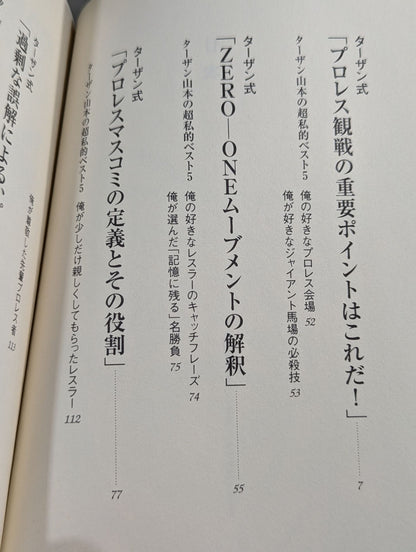 ターザン式
「プロレス観戦の重要ポイントはこれだ！」 7
ターザン山本の超私的ベスト5 俺の好きなプロレス会場 52
俺が好きなジャイアント馬場の必殺技 53
ターザン式
「ZERO―ONEムーブメントの解釈」 55
ターザン山本の超私的ベスト5 俺の好きなレスラーのキャッチフレーズ 74
俺が選んだ「記憶に残る」名勝負 75
ターザン式
「プロレスマスコミの定義とその役割」 77
ターザン山本の超私的ベスト5 俺が少しだけ親しくしてもらったレスラー 112
プロレス者 113
ターザン式
「過剰な誤解による